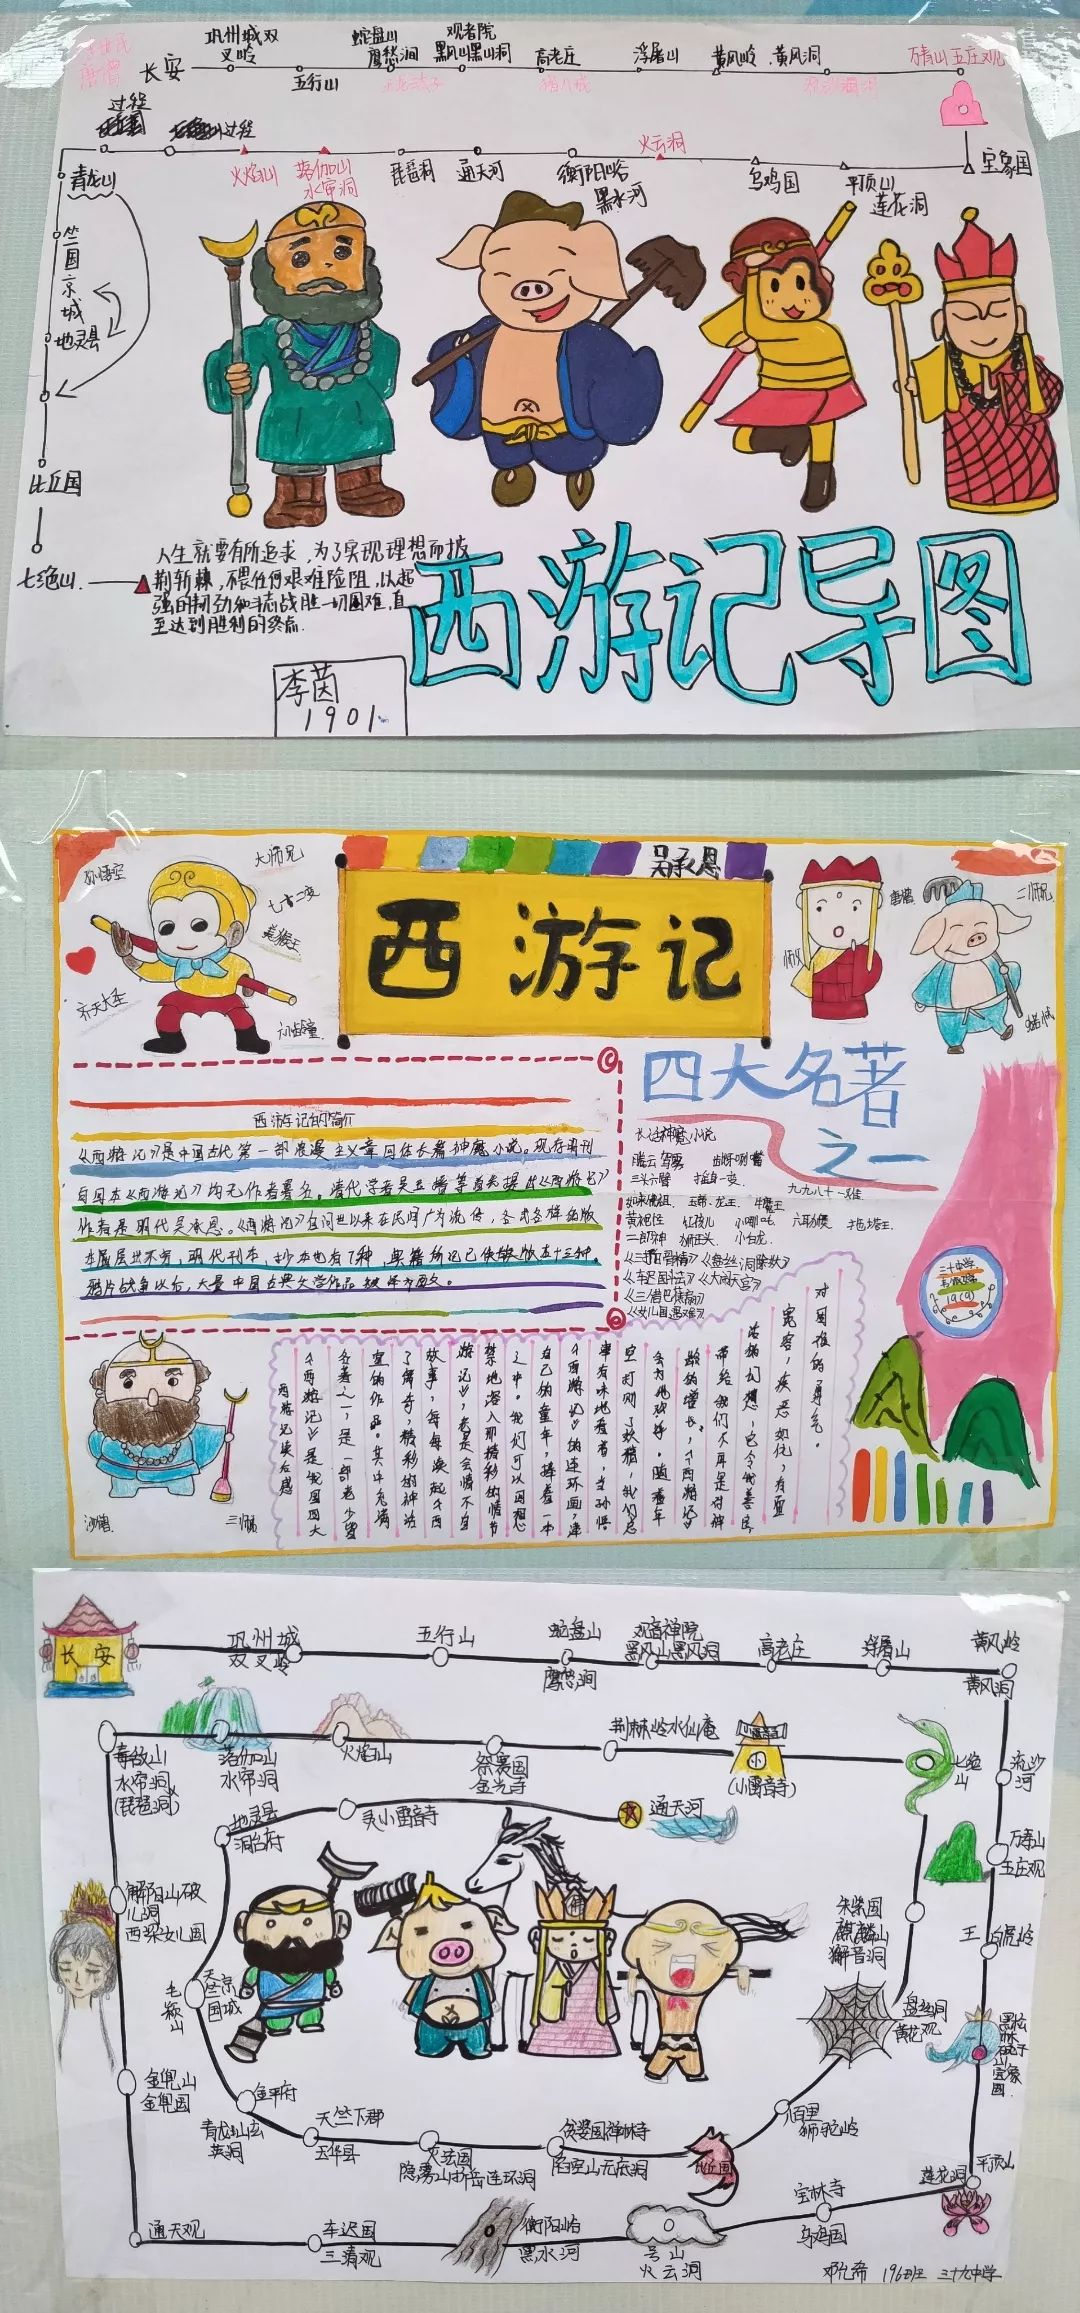 长安
巩州城双
叉岭
五行山
蛇盘山
鹰愁涧
观音院
黑风山黑风洞
高老庄
浮屠山
黄风岭.黄风洞
万寿山五庄观
过程
火焰山
落伽山
水帘洞
琵琶洞
通天河
衡阳峪
黑水河
火云洞
乌鸡国
平顶山
莲花洞
宝象国
青龙山
竺国京城
地灵县
比丘国
七绝山
人生就要有所追求,为了实现理想而披
荆斩棘,不畏任何艰难险阻,以超
强的韧劲和斗志战胜一切困难,直
至达到胜利的终点.
西游记导图
李茵
1901
孙悟空
大师兄
七十二变
美猴王
齐天大圣
西游记
吴承恩
唐僧
师父
二师兄
四大名著
之一
西游记的简介
《西游记》是中国古代第一部浪漫主义章回体长篇神魔小说。现存明刊
百回本《西游记》均无作者署名。清代学者吴玉搢等首先提出《西游记》
作者是明代吴承恩。《西游记》自问世以来在民间广为流传,各式各样的版
本层出不穷,明代刊本
鸦片战争以后,大量中国古典文学作品被译为西文。
长篇神魔小说
腾云驾雾
三头六臂
摇身一变
九九八十一难
如来佛祖
玉帝
龙王
牛魔王
黄袍怪
红孩儿
小哪吒
六耳猕猴
托塔王
二郎神
狮王头
小白龙
《三打白骨精》
《大闹天宫》
《三借芭蕉扇》
《女儿国遇难》
三十中学
沙僧
三师弟
西游记读后感
《西游记》是我国四大
名著之一,是一部老少皆
宜的作品。其中充满
了离奇,精彩的神话
故事,每每谈起《西
游记》,总是会情不自
禁地溶入那精彩的情节
之中。我们可以回想
自己的童年,捧着一本
《西游记》的连环画,津
津有味地看着,当孙悟
空打刚了妖精,我们总
会为他欢呼。随着年
龄的增长,《西游记》
带给我们不再是对神
话的幻想,它令我善良,
宽容,疾恶如仇,有面
对困难的勇气。
长安
巩州城
双叉岭
五行山
蛇盘山
鹰愁涧
观音禅院
黑风山黑风洞
高老庄
浮屠山
黄风岭
黄风洞
毒敌山
水帘洞
(琵琶洞)
落伽山
水帘洞
火焰山
祭赛国
金光寺
荆棘岭水仙庵
小雷音寺
(小雷音寺)
七绝
山
流沙
河
地灵县
灵小雷音寺
通天河
万寿山
五庄观
解阳山破
儿洞
西梁女儿国
朱紫国
麒麟山
獬音洞
白虎岭
天竺京
国城
毛颖山
盘丝洞
黄花观
金兜山
金兜国
金平府
青龙山玄
英洞
天竺下郡
玉华县
灭法国
隐雾山折岳连环洞
贫婆国禅林寺
陷空山无底洞
比丘国
狮驼岭
莲花洞
平顶山
宝林寺
乌鸡国
通天观
车迟国
三清观
衡阳峪
黑水河
号山
火云洞
196班
三十九中学